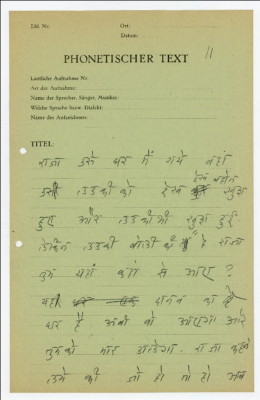 Lfd. Nr.
Ort:
Datum:
PHONETISCHER TEXT
11
Lautliche Aufnahme Nr.
Art der Aufnahme:
Name der Sprecher, Sänger, Musiker:
Welche Sprache bezw. Dialekt:
Name des Aufnehmers:
TITEL:
राजा उसे घर में गये वहां
उसी लडकी को देख
हुए और लडकी भी खुश हुई.
लेकिन लडकी बोली की है राजा
तुम यहां कहां से आए ?
यहां दानव का
घर है अबी वो आएगा और
तुमको मार डालेगा. राजा कहने
लगे की जो हो सो हो अब